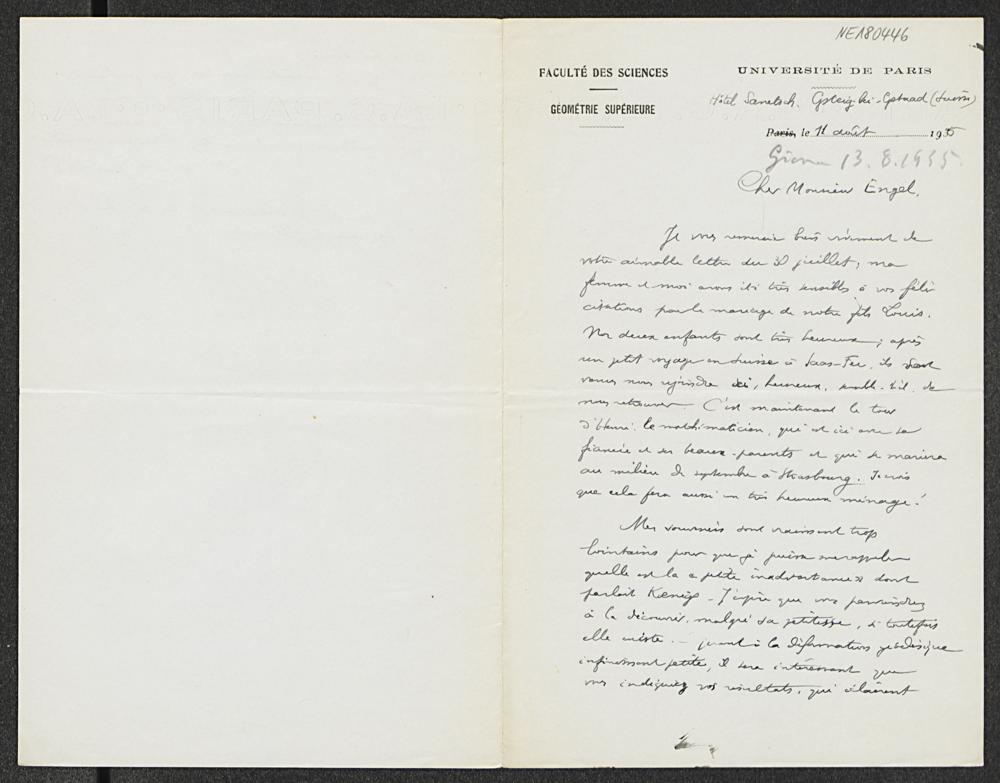 NE180446
FACULTÉ DES SCIENCES
GÉOMÉTRIE SUPÉRIEURE
UNIVERSITÉ DE PARIS
Hôtel Sanetsch. Gsteig bei Gstaad (Suisse)
Paris, le 11 août 1935
13.8.1935.
Cher Monsieur Engel,
Je vous remercie bien vivement de
votre aimable lettre du 30 juillet; ma
femme et moi avons été très sensibles à vos féli-
citations pour le mariage de notre fils Louis.
Nos deux enfants sont très heureux; après
un petit voyage en Suisse à Saas-Fee, ils sont
venus nous rejoindre ici, heureux, semble-t-il, de
nous retrouver. C'est maintenant le tour
d'Henri, le mathématicien, qui est ici avec sa
fiancée et ses beaux-parents et qui se mariera
au milieu de septembre à Strasbourg. Je crois
que cela fera aussi un très heureux ménage!
Mes souvenirs sont vraiment trop
lointains pour que je puisse me rappeler
quelle est la « petite inadvertance » dont
parlait Kœnigs - J'espère que vous parviendrez
à la découvrir, malgré sa petitesse, si toutefois
elle existe. - Quant à la déformation géodésique
infiniment petite, il sera intéressant que
vous indiquiez vos résultats, qui